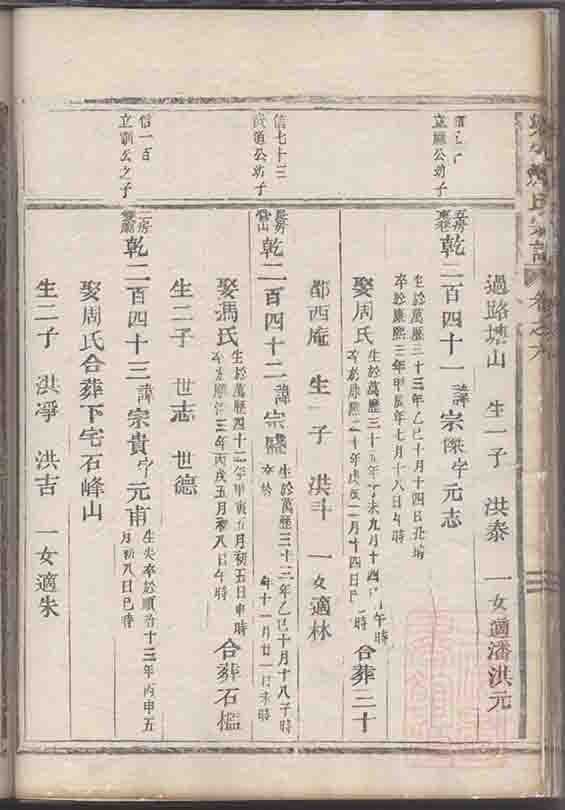 過路塘山 生一子 洪泰 一女適潘洪元
立 公幼子
五房
乾二百四十一 諱宗傑字元志
生於萬歷三十三年乙巳十月十四日 時
卒於康熙三年甲辰年七月十八日午時
娶周氏
生於萬歷三十五年丁未九月十四日 午時
卒於康熙二十年 十四日 時
合葬三十
都西庵 生一子 洪斗 一女適林
信七十三
道公幼子
乾二百四十二 諱宗
生於萬歷三十三年乙巳十月十八子時
卒於 年十一月廿一日未時
娶馮氏
生於萬歷四十二年甲寅五月初五日申時
卒於順治三年丙戌五月初八日午時
合葬石檻
生二子 世志 世德
信一百
立 公之子
二房
乾二百四十三 諱宗貴字元甫
生失卒於順治十三年丙申五
月初八日巳時
娶周氏合葬下宅石峰山
生二子 洪淨 洪吉 一女適朱